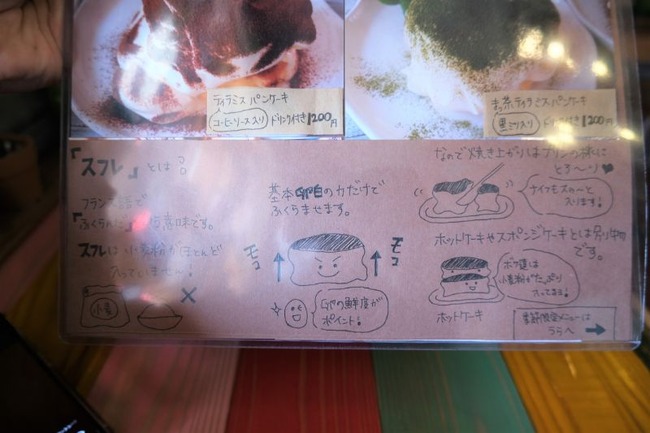 ティラミス パンケーキ
コーヒーソース入り ドリンク付き 1200円
抹茶ティラミスパンケーキ
黒ミツ入り ドリンク付き 1200円
「スフレ」とは
フランス語で
「ふくらんだ」 意味です。
スフレは小麦粉がほとんど
入っていませーん!
小麦
基本 卵白の力だけで
ふくらませます。
モコ
モコ
の鮮度が
ポイント!
なので焼き上がりはプリンの様に
とろ〜り
ナイフもスの〜と
入ります!
ホットケーキやスポンジケーキとは別物
です。
ボク達は
小麦粉がたっぷり
入ってるよ!
ホットケーキ
季節限定メニューは
うらへ